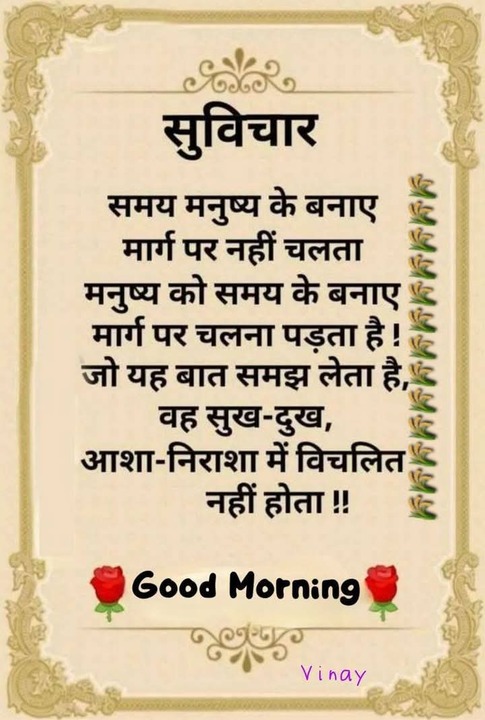 सुविचार
समय मनुष्य के बनाए
मार्ग पर नहीं चलता
मनुष्य को समय के बनाए
मार्ग पर चलना पड़ता है !
जो यह बात समझ लेता है,
वह सुख-दुख,
आशा-निराशा में विचलित
नहीं होता !!
Good Morning
Vinay